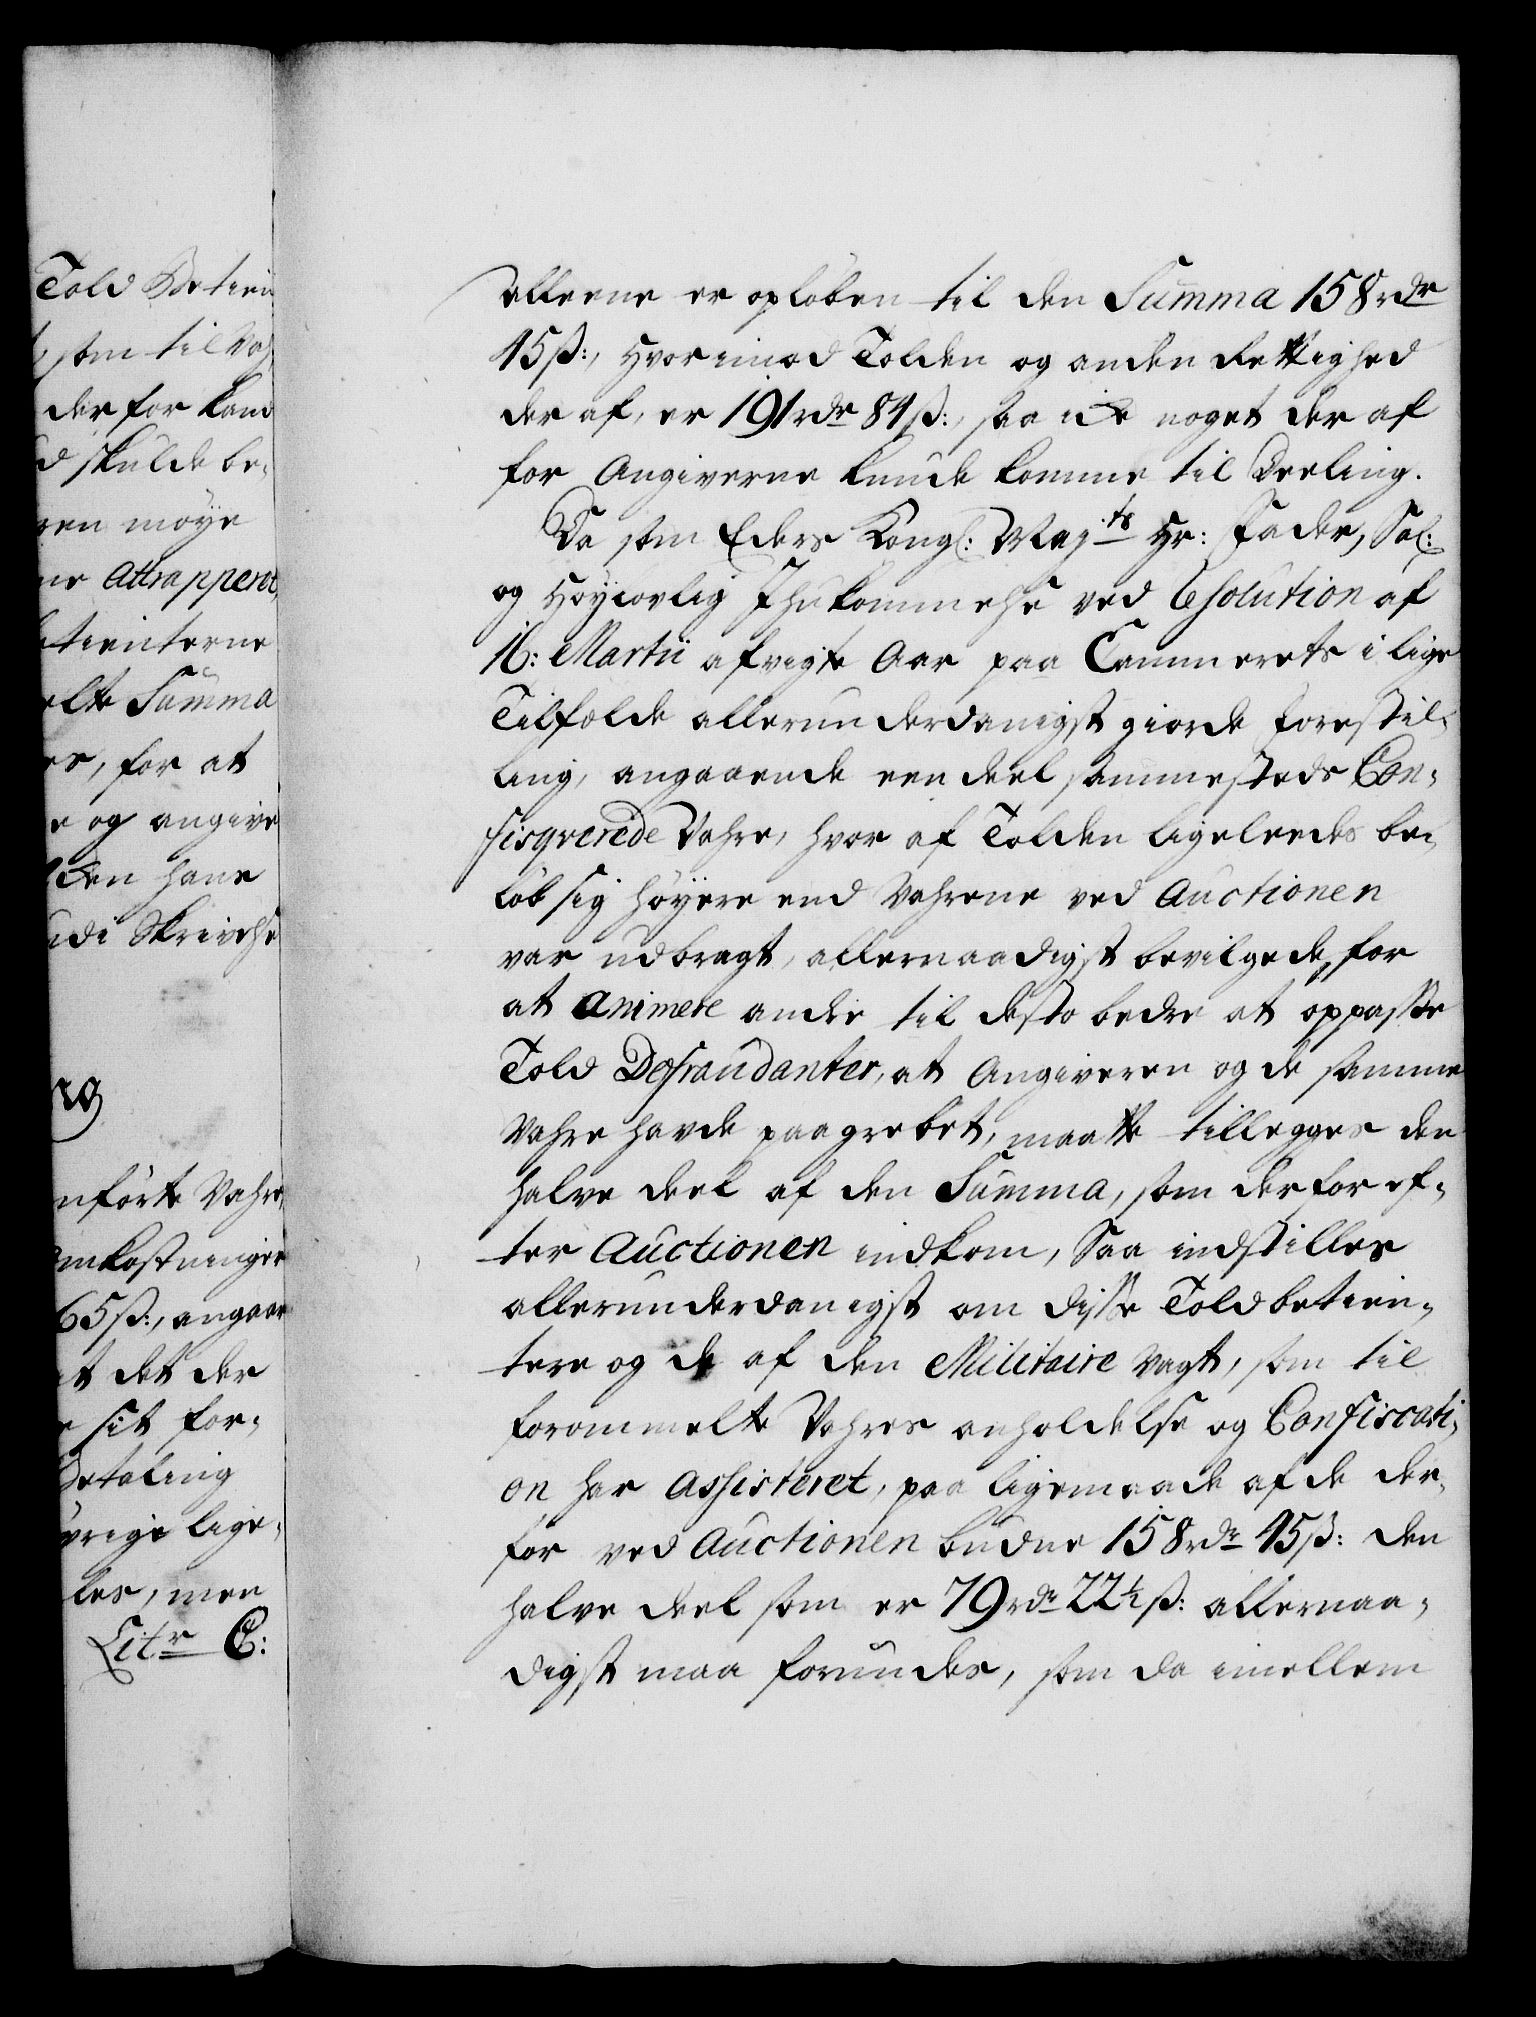 Told Betien
som til Vah
derfor kand
d skulde be-
gen møye
ne Attrapperet,
etienterne
elte Summa
er, for at
e og angive
den hans
udi Skrivelse
nførte Vahre,
omkostninger
65 ß:, angaar
at det der
e sit for-
Betaling
øvrige lige-
les, men
Litr C:
alleene er opløben til den Summa 158 rdr
45 ß:, hvorimod Tolden og anden Rettighed
der af, er 191 rdr 84 ß:, saa icke noget der af
for Angiverne kunde komme til Deeling.
Da som Eders Kongl: Mayts Hr: Fader, Sal:
og Høylovlig Ihukommelse ved Resolution af
16: Martii afvigte Aar paa Cammerets i lige
Tilfelde allerunderdanigst giorde forestil-
ling, angaaende een deel sammesteds Con-
fisqverede Vahre, hvor af Tolden ligeleedes be-
løb sig høyere end Vahrene ved Auctionen
var udbragt, allernaadigst bevilgede, for
at animere andre til desto bedre at oppasse
Told Defraudanter, at Angiveren og de samme
Vahre havde paagrebet, maatte tillegges den
halve deel af den Summa, som derfor ef-
ter Auctionen indkom, Saa indstilles
allerunderdanigst om disse Toldbetien-
tere og de af den Militaire Vagt, som til
forommelte Vahres anholdelse og Confiscati-
on har assisteret, paa ligemaade af de der-
for ved Auctionen budne 158 rdr 45 ß: den
halve deel som er 79 rdr 22½ ß: allernaa-
digst maa forundes, som da imellem